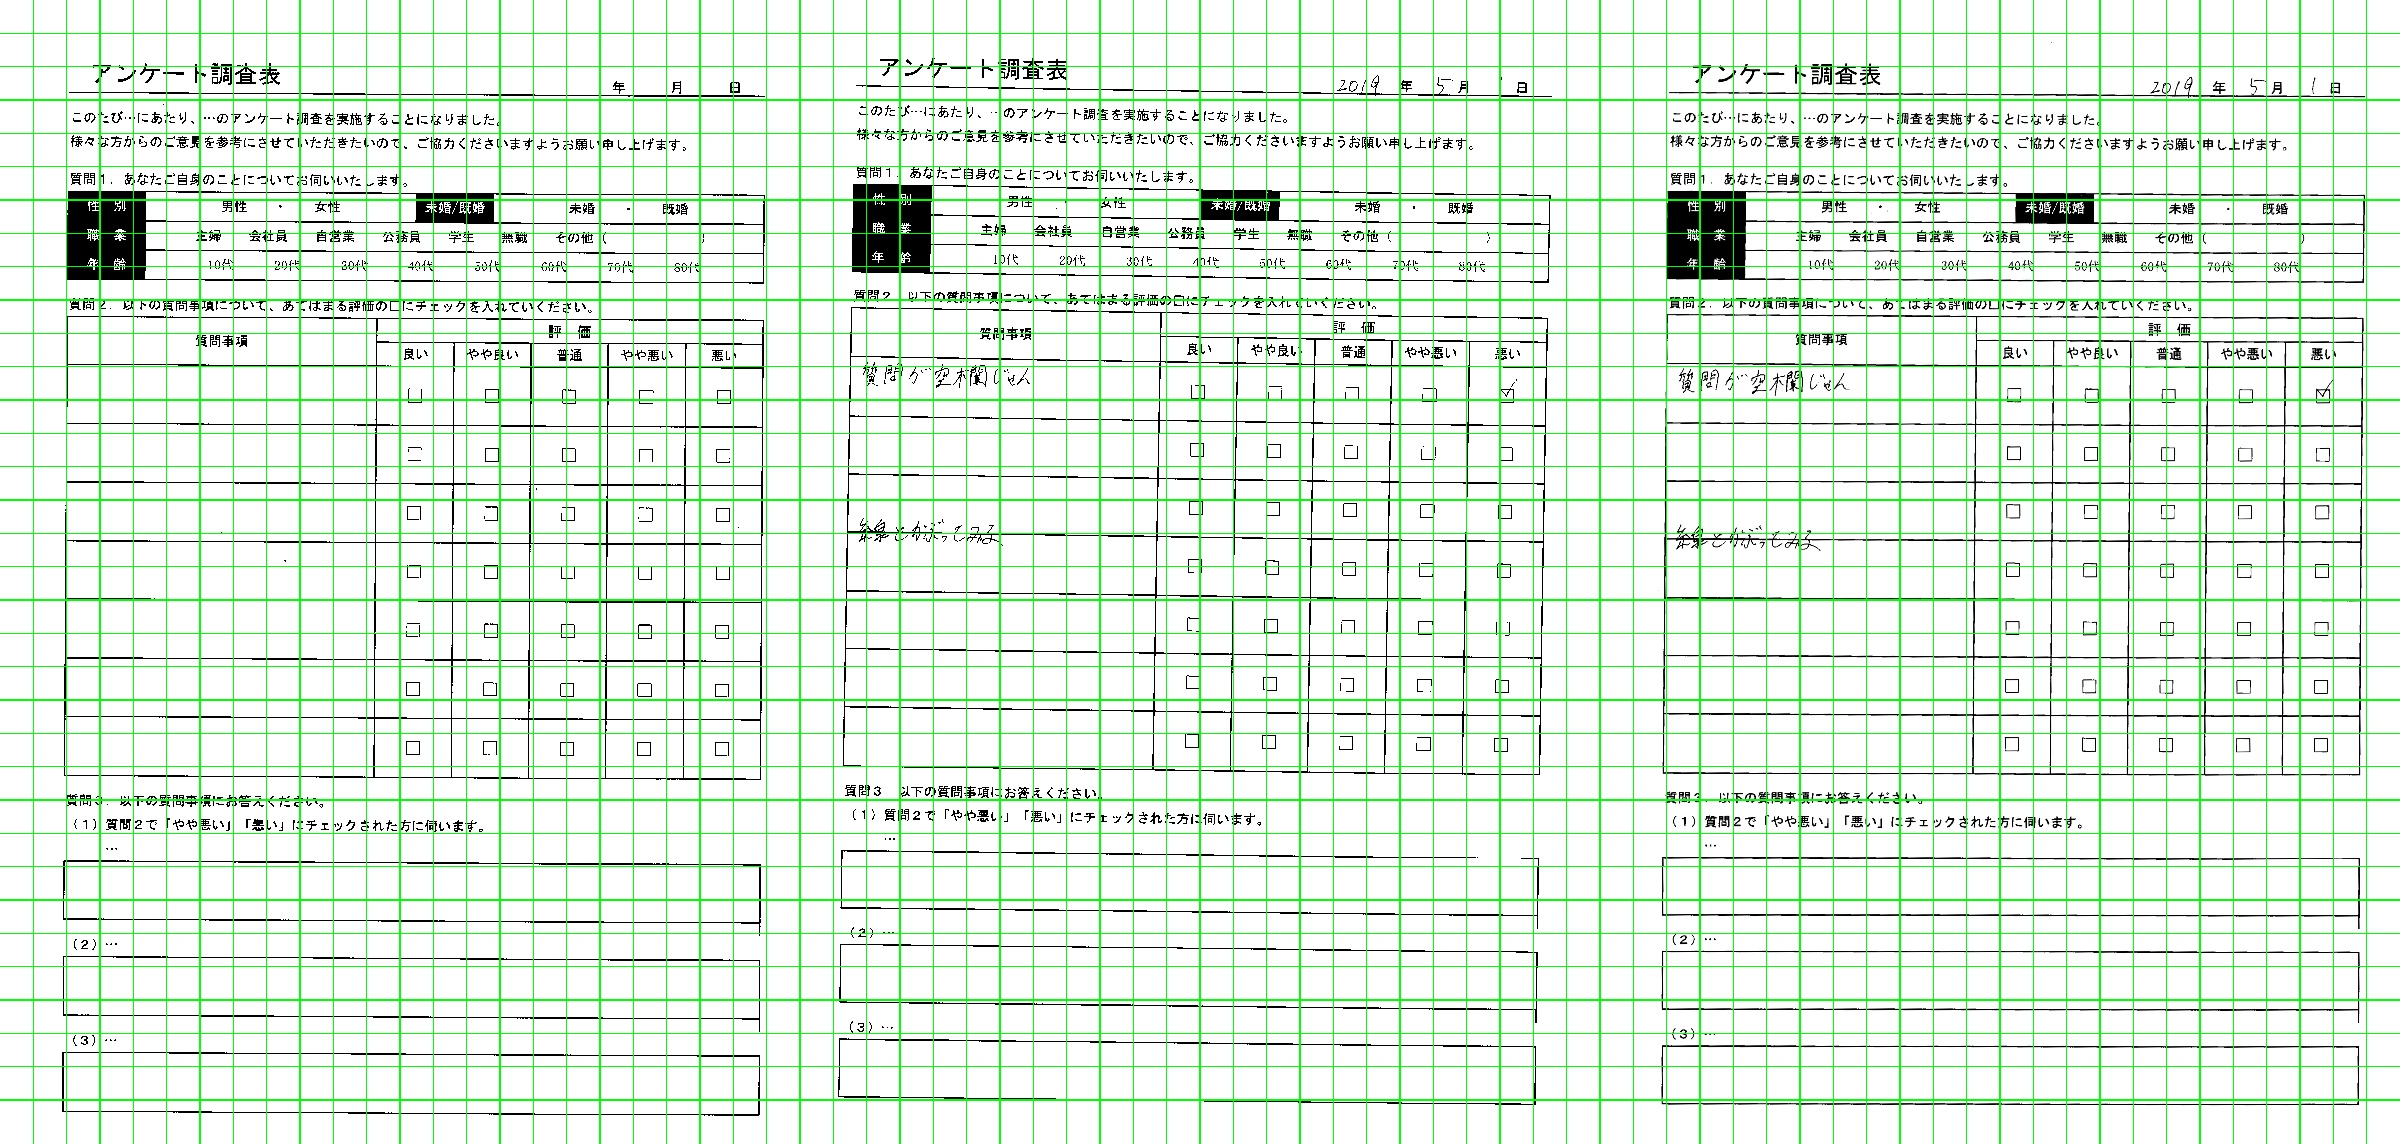 アンケート調査表
年 月 日
このたび…にあたり、…のアンケート調査を実施することになりました。
様々な方からのご意見を参考にさせていただきたいので、ご協力くださいますようお願い申し上げます。
質問1．あなたご自身のことについてお伺いいたします。
性 別 男性 ・ 女性 未婚/既婚 未婚 ・ 既婚
職 業 主婦 会社員 自営業 公務員 学生 無職 その他（ ）
年 齢 10代 20代 30代 40代 50代 60代 70代 80代
質問2．以下の質問事項について、あてはまる評価の口にチェックを入れていください。
質問事項 評 価
良い やや良い 普通 やや悪い 悪い
質問3．以下の質問事項にお答えください。
（1）質問2で「やや悪い」「悪い」にチェックされた方に伺います。
…
（2）…
（3）…
アンケート調査表
2019 年 5 月 日
このたび…にあたり、…のアンケート調査を実施することになりました。
様々な方からのご意見を参考にさせていただきたいので、ご協力くださいますようお願い申し上げます。
質問1．あなたご自身のことについてお伺いいたします。
性 別 男性 ・ 女性 未婚/既婚 未婚 ・ 既婚
職 業 主婦 会社員 自営業 公務員 学生 無職 その他（ ）
年 齢 10代 20代 30代 40代 50代 60代 70代 80代
質問2 以下の質問事項について、あてはまる評価の口にチェックを入れていください。
質問事項 評 価
良い やや良い 普通 やや悪い 悪い
質問が空欄じゃん
線とかぶってみる
質問3 以下の質問事項にお答えください。
（1）質問2で「やや悪い」「悪い」にチェックされた方に伺います。
…
（2）…
（3）…
アンケート調査表
2019 年 5 月 1 日
このたび…にあたり、…のアンケート調査を実施することになりました。
様々な方からのご意見を参考にさせていただきたいので、ご協力くださいますようお願い申し上げます。
質問1．あなたご自身のことについてお伺いいたします。
性 別 男性 ・ 女性 未婚/既婚 未婚 ・ 既婚
職 業 主婦 会社員 自営業 公務員 学生 無職 その他（ ）
年 齢 10代 20代 30代 40代 50代 60代 70代 80代
質問2．以下の質問事項について、あてはまる評価の口にチェックを入れていください。
質問事項 評 価
良い やや良い 普通 やや悪い 悪い
質問が空欄じゃん
線とかぶってみる
質問3．以下の質問事項にお答えください。
（1）質問2で「やや悪い」「悪い」にチェックされた方に伺います。
…
（2）…
（3）…